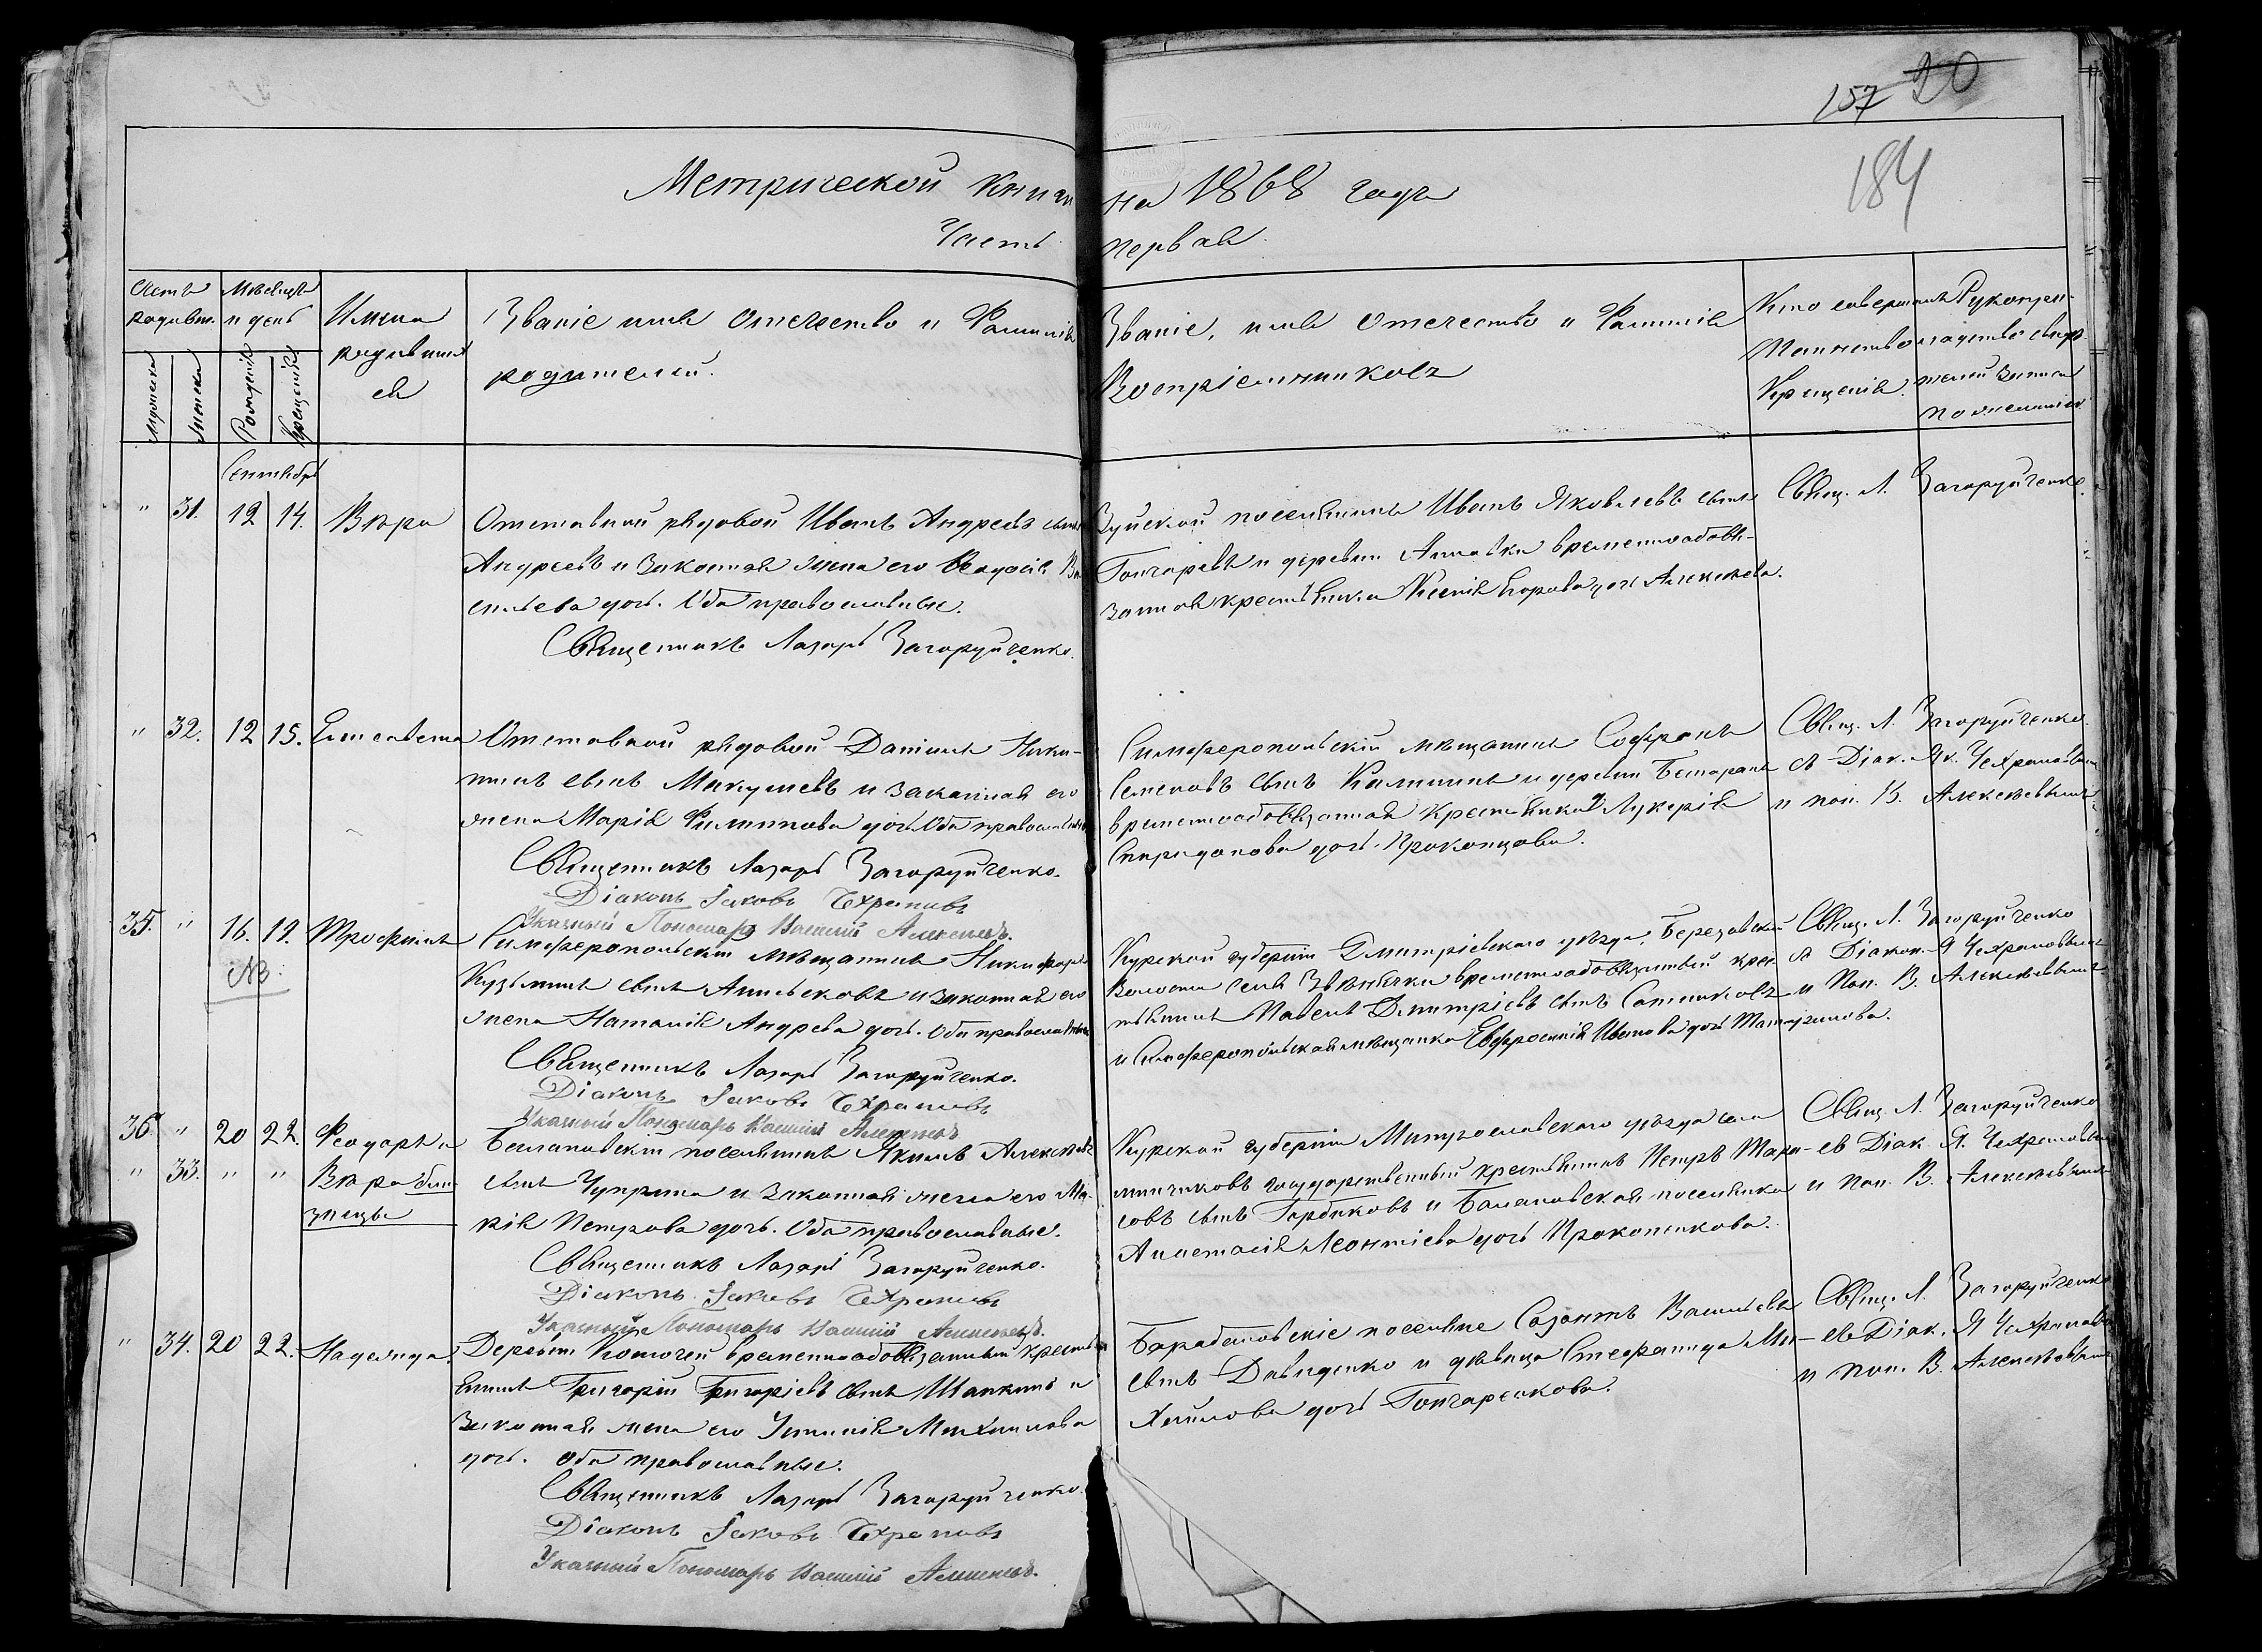 157 20
184
Метрической Книги на 1868 годъ
Часть первая.
Счетъ родивш.
Мѣсяцъ и день
Имена родившихся
Званіе имя Отечество и Фамилія родителей.
Званіе, имя Отечество и Фамилія Воспріемниковъ
Кто совершалъ Таинство Крещенія.
Рукоприкладство свидѣтелей записи по желанію
Мужеска
Женска
Рожденія
Крещенія
Сентябрь
" 31. 12 14. Вѣра
Отставной рядовой Иванъ Андреевъ сынъ
Андреевъ и законная жена его Ѳеодосія Ва-
сильева дочь. Оба православные.
Священникъ Лазарь Загоруйченко.
Зуйской поселянинъ Иванъ Яковлевъ сынъ
Гончаревъ и деревни Анновки временнообя-
занная крестьянка Ксенія Егорова дочь Алексѣева.
Свящ. Л. Загоруйченко.
" 32. 12 15. Елисавета
Отставной рядовой Даніилъ Ники-
тинъ сынъ Макушевъ и законная его
жена Марія Филиппова дочь. Оба православные
Священникъ Лазарь Загоруйченко.
Діаконъ Іаковъ Чехрановъ
Указный Пономарь Василій Алексѣевъ.
Симферопольскій мѣщанинъ Софронъ
Семеновъ сынъ Калининъ и деревни Бешаранъ
временнообязанная крестьянка Лукерія
Спиридонова дочь Прокопцова.
Свящ. Л. Загоруйченко.
съ Діак. Як. Чехрановымъ
и пон. В. Алексѣевымъ
35. " 16. 19. Трофимъ
NB.
Симферопольскій мѣщанинъ Никифоръ
Кузьминъ сынъ и законная его
жена Наталія Андрева дочь. Оба православные
Священникъ Лазарь Загоруйченко.
Діаконъ Іаковъ Чехрановъ
Указный Пономарь Василій Алексѣевъ
Курской губерніи Дмитріевскаго уѣзда, Березовской
Волости села Звѣнячки временнообязанный крес-
тьянинъ Павелъ Димитріевъ сынъ Сотниковъ
и Симферопольская мѣщанка Евфросинія Иванова дочь
Свящ. Л. Загоруйченко
съ Діакон. Я Чехрановымъ
и Пон. В. Алексѣевымъ
36. " 20 22. Ѳеодоръ и
" 33. " " Вѣра близ-
знецы
Балановскій поселянинъ Акимъ Алексѣевъ
сынъ Чуприна и законная жена его Ма-
рія Петрова дочь. Оба православные.
Священникъ Лазарь Загоруйченко.
Діаконъ Іаковъ Чехрановъ
Указный Пономарь Василій Алексѣевъ.
Курской губерніи уѣзда села
государственный крестьянинъ Петръ Тара-
совъ сынъ Горбиковъ и Балановская поселянка
Анастасія Леонтіева дочь Прокопенкова.
Свящ. Л. Загоруйченко
съ Діак. Я. Чехрановымъ
и пон. В. Алексѣевымъ
" 34. 20 22. Надежда.
Деревни временнообязанный крестья-
нинъ Григорій Григоріевъ сынъ Шапкинъ и
Законная жена его Устинія Михаилова
дочь. Оба православные.
Священникъ Лазарь Загоруйченко.
Діаконъ Іаковъ Чехрановъ
Указный Пономарь Василій Алексѣевъ.
поселяне Созонтъ Васильевъ
сынъ Давиденко и дѣвица Стефанида Ми-
хайлова дочь Гончаренкова.
Свящ. Л. Загоруйченко
съ Діак. Я Чехрановымъ
и пон. В. Алексѣевымъ